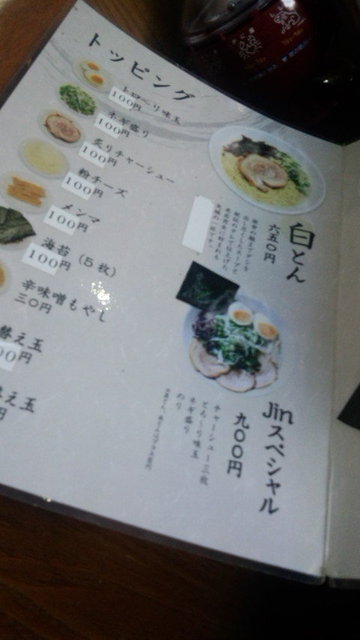 トッピング
とろ〜り味玉
100円
ネギ盛り
100円
炙りチャーシュー
100円
粉チーズ
100円
メンマ
100円
海苔（5枚）
100円
辛味噌もやし
三〇円
替え玉
00円
替え玉
円
白とん
六五〇円
Jinスペシャル
九〇〇円
チャーシュー三枚
とろ〜り味玉
ネギ盛り
のり